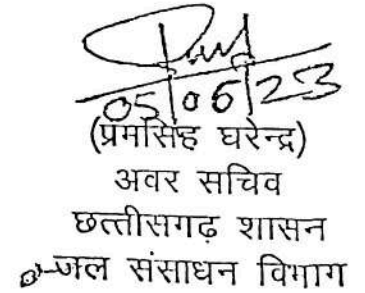 05/06/23
(प्रेमसिंह घरेन्द्र)
अवर सचिव
छत्तीसगढ़ शासन
जल संसाधन विभाग